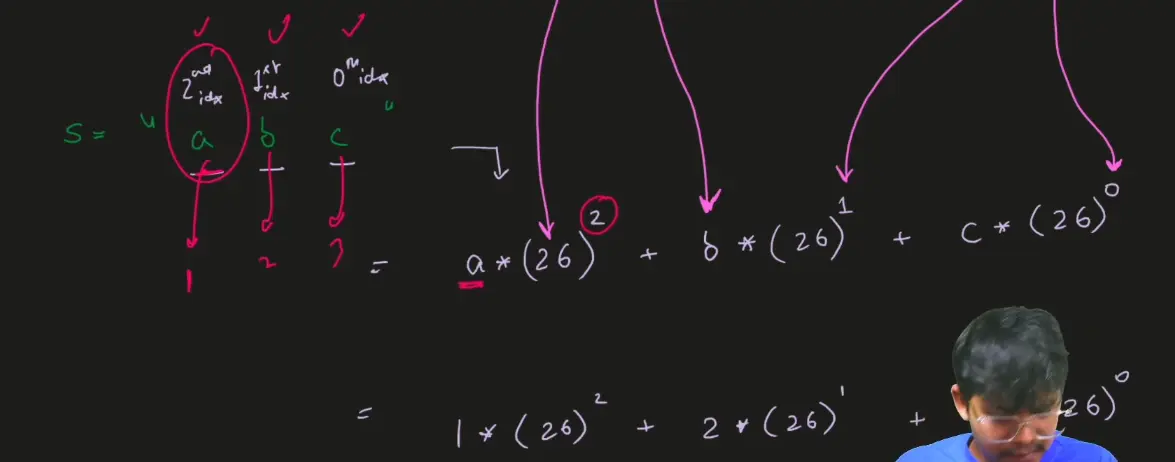 2nd idx 1st idx 0th idx
S = " a b c "
1 2 3
= a * (26)^2 + b * (26)^1 + c * (26)^0
= 1 * (26)^2 + 2 * (26)^1 + 26)^0